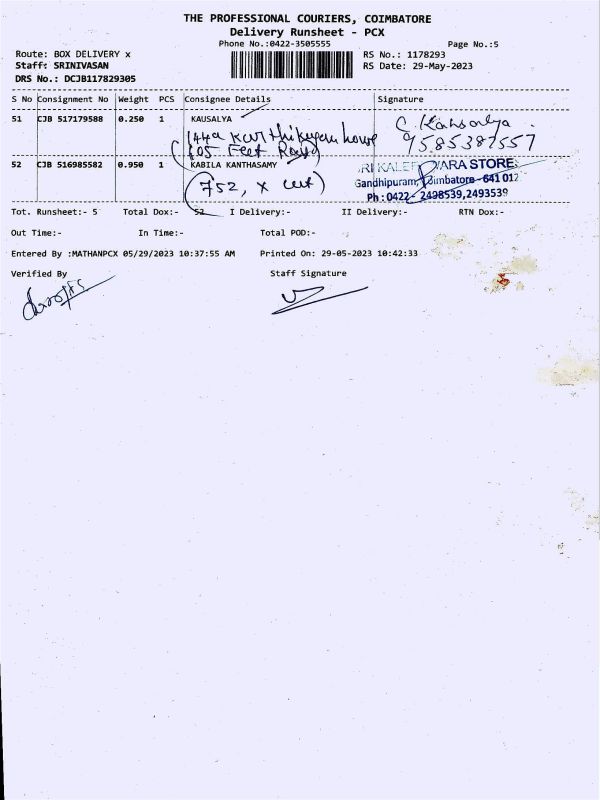 THE PROFESSIONAL COURIERS, COIMBATORE
Delivery Runsheet - PCX
Phone No.:0422-3505555 Page No.:5
Route: BOX DELIVERY x RS No.: 1178293
Staff: SRINIVASAN RS Date: 29-May-2023
DRS No.: DCJB117829305
S No Consignment No Weight PCS Consignee Details Signature
51 CJB 517179588 0.250 1 KAUSALYA C. Kausalya
144a Karthikeyan house 9585387557
(105 Feet Road)
52 CJB 516985582 0.950 1 KABILA KANTHASAMY SRI KALEESWARA STORES
(752, x cut) Gandhipuram, Coimbatore - 641 012
Ph : 0422 - 2498539, 2493539
Tot. Runsheet:- 5 Total Dox:- 52 I Delivery:- II Delivery:- RTN Dox:-
Out Time:- In Time:- Total POD:-
Entered By :MATHANPCX 05/29/2023 10:37:55 AM Printed On: 29-05-2023 10:42:33
Verified By Staff Signature